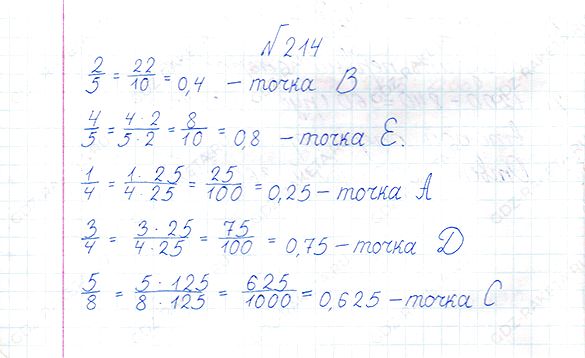 №214
2/5 = 22/10 = 0,4 – точка B
4/5 = 4·2/5·2 = 8/10 = 0,8 – точка E.
1/4 = 1·25/4·25 = 25/100 = 0,25 – точка A
3/4 = 3·25/4·25 = 75/100 = 0,75 – точка D
5/8 = 5·125/8·125 = 625/1000 = 0,625 – точка C